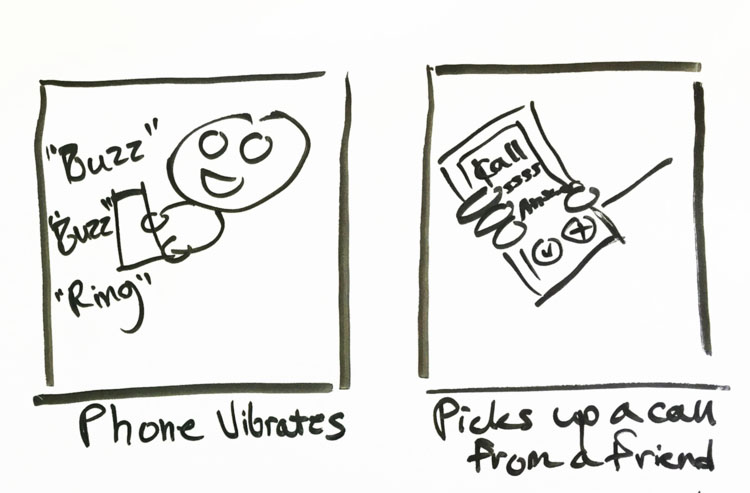 "Buzz"
"Buzz"
"Ring"
Phone Vibrates
Call
5555
Picks up a call
from a friend